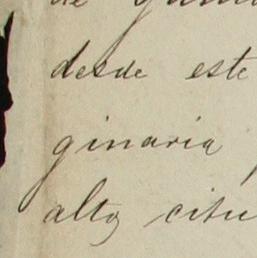 de
desde este
ginaria
alto, citu